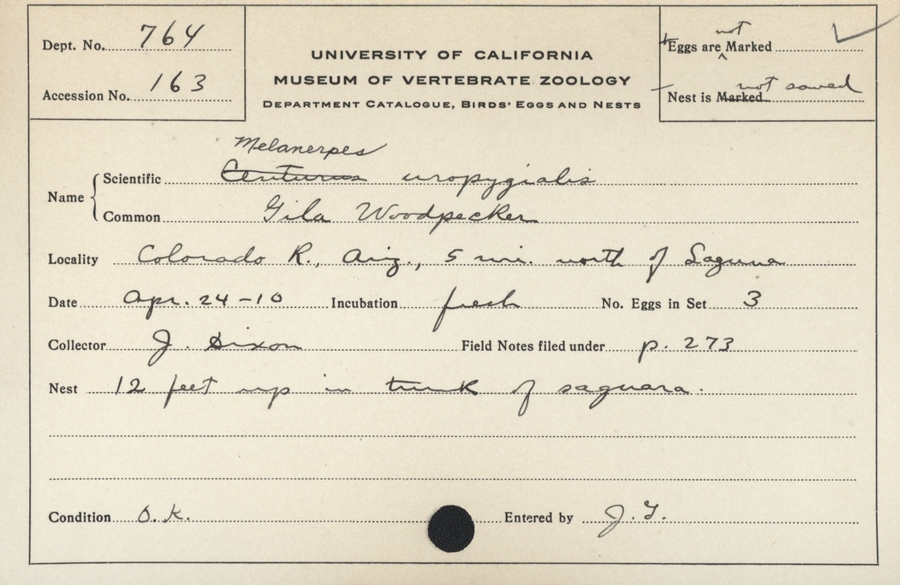 Dept. No. 764
Accession No. 163
UNIVERSITY OF CALIFORNIA
MUSEUM OF VERTEBRATE ZOOLOGY
DEPARTMENT CATALOGUE, BIRDS' EGGS AND NESTS
not
Eggs are ^ Marked
not saved
Nest is Marked
Melanerpes
Name { Scientific Centurus uropygialis
Common Gila Woodpecker
Locality Colorado R., Ariz., 5 mi. north of Laguna
Date Apr. 24-10 Incubation fresh No. Eggs in Set 3
Collector J. Dixon Field Notes filed under p. 273
Nest 12 feet up in trunk of saguara.
Condition O.K. Entered by J.G.